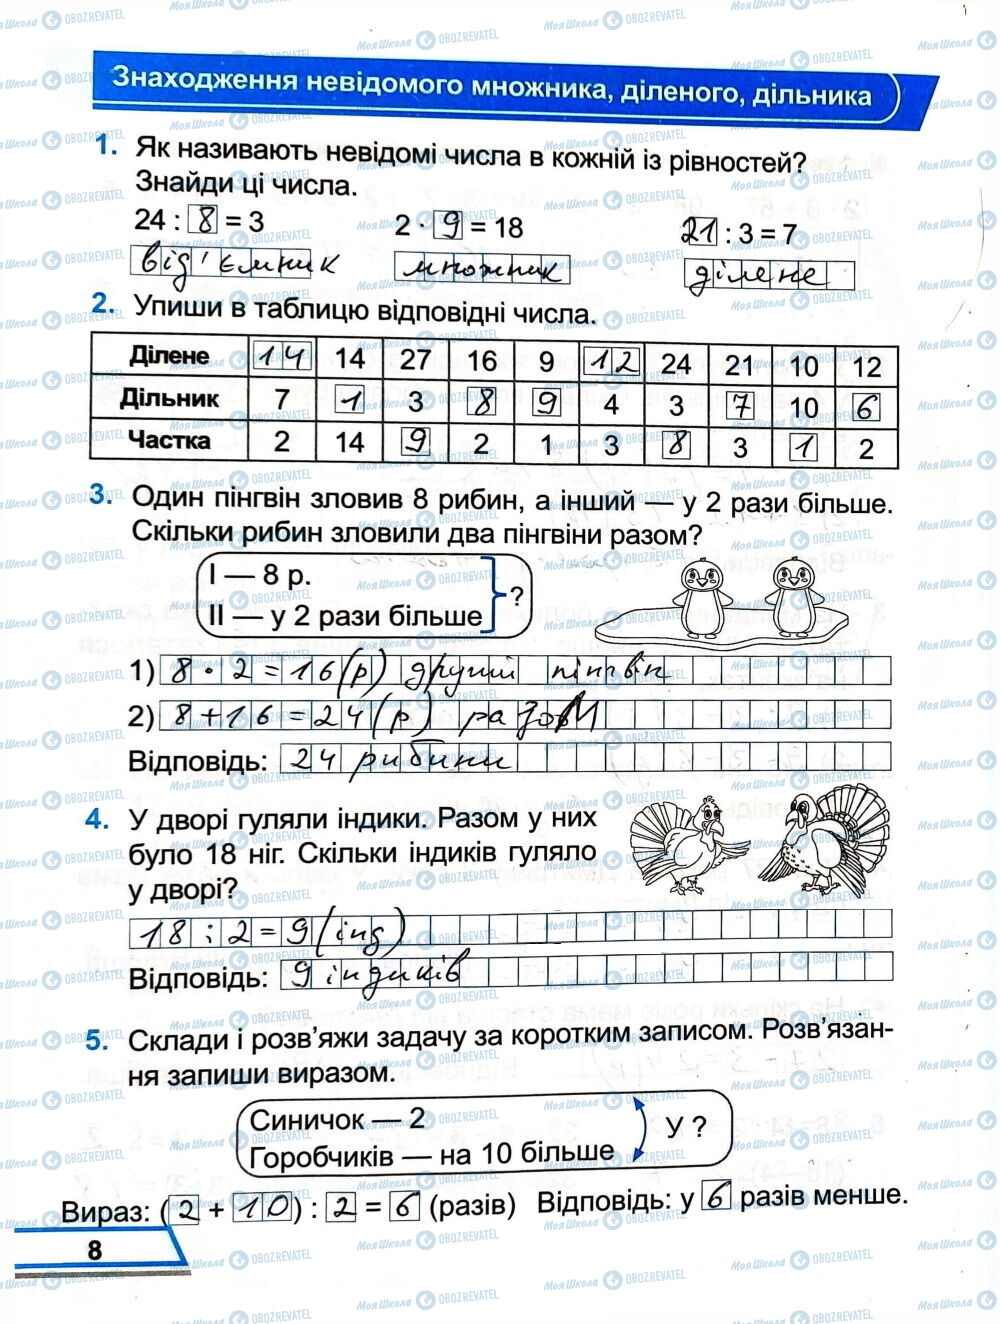 Знаходження невідомого множника, діленого, дільника
1. Як називають невідомі числа в кожній із рівностей?
Знайди ці числа.
24 : 8 = 3 2 · 9 = 18 21 : 3 = 7
від'ємник множник ділене
2. Упиши в таблицю відповідні числа.
Ділене 14 14 27 16 9 12 24 21 10 12
Дільник 7 1 3 8 9 4 3 7 10 6
Частка 2 14 9 2 1 3 8 3 1 2
3. Один пінгвін зловив 8 рибин, а інший — у 2 рази більше.
Скільки рибин зловили два пінгвіни разом?
І — 8 р.
ІІ — у 2 рази більше ?
1) 8 · 2 = 16 (р) другий пінгвін
2) 8 + 16 = 24 (р) разом
Відповідь: 24 рибини
4. У дворі гуляли індики. Разом у них
було 18 ніг. Скільки індиків гуляло
у дворі?
18 : 2 = 9 (інд)
Відповідь: 9 індиків
5. Склади і розв'яжи задачу за коротким записом. Розв'язан-
ня запиши виразом.
Синичок — 2
Горобчиків — на 10 більше У ?
Вираз: (2 + 10) : 2 = 6 (разів) Відповідь: у 6 разів менше.
8
МояШкола OBOZREVATEL